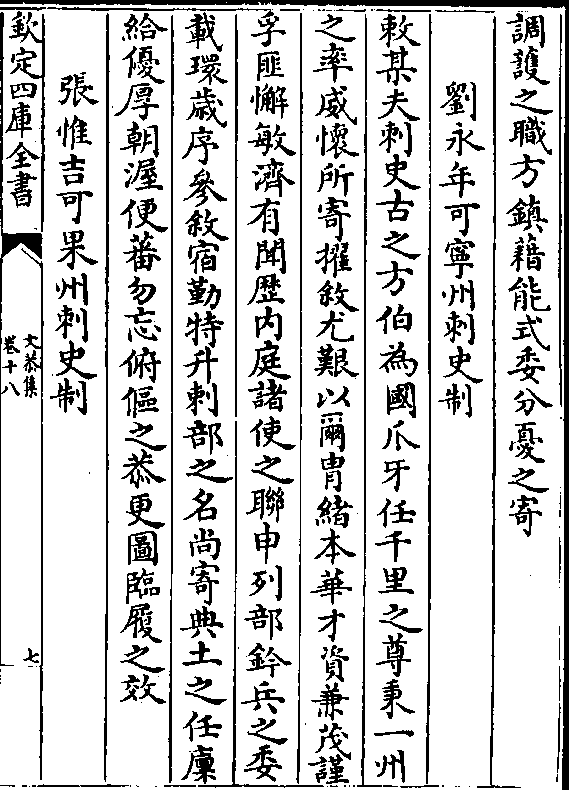 調護之職方鎮藉能式委分憂之寄
劉永年可寧州刺史制
敕某夫刺史古之方伯為國爪牙任千里之尊秉一州
之率威懷所寄擢敘尤艱以爾胄緒本華才資兼茂謹
孚匪懈敏濟有聞歴内庭諸使之聯申列部鈐兵之委
載環歳序參敘宿勤特升刺部之名尚寄典土之任廩
給優厚朝渥便蕃勿忘俯傴之恭更圖臨履之效
張惟吉可果州刺史制
欽定四庫全書
文恭集
卷十八
七